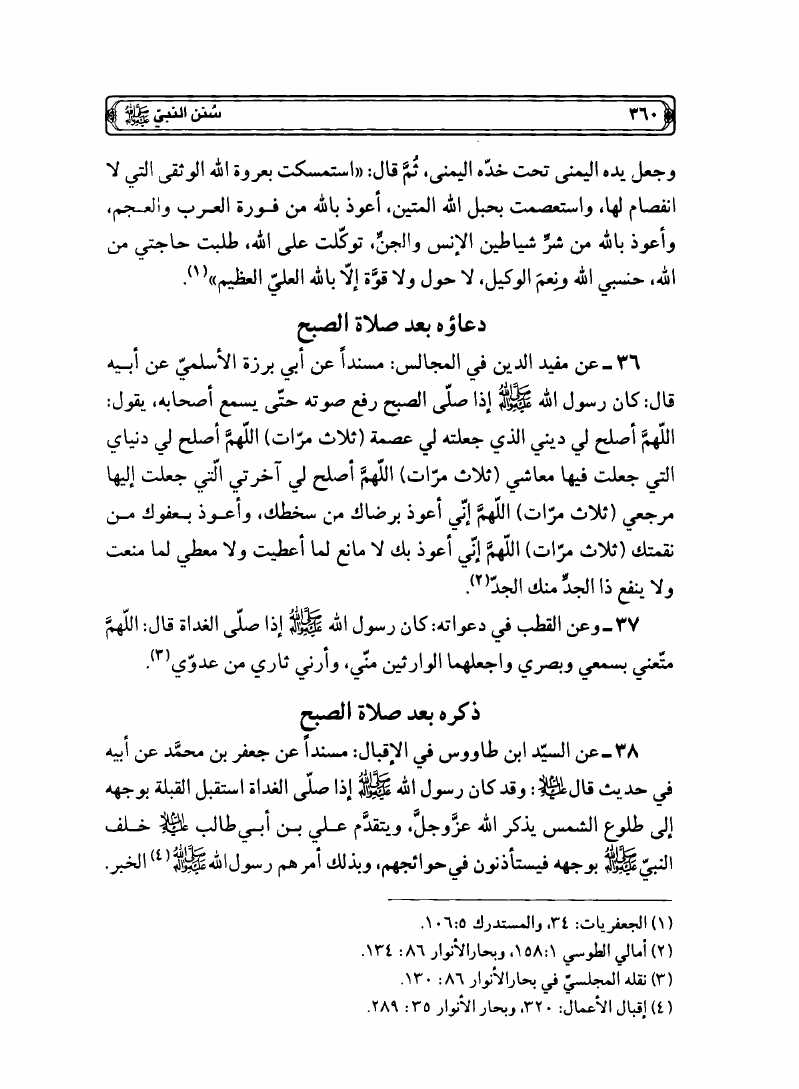 ٣٦٠
سُنن النبيّ ﷺ
وجعل يده اليمنى تحت خدّه اليمنى، ثُمَّ قال: «استمسكت بعروة الله الوثقى التي لا
انفصام لها، واستعصمت بحبل الله المتين، أعوذ بالله من فـورة العـرب والعـجم،
وأعوذ بالله من شرِّ شياطين الإنس والجنِّ، توكّلت على الله، طلبت حاجتي من
الله، حَسبي الله ونِعمَ الوكيل، لا حول ولا قوَّة إلّا بالله العليّ العظيم»(١).
دعاؤه بعد صلاة الصبح
٣٦ ـ عن مفيد الدين في المجالس: مسنداً عن أبي برزة الأسلميّ عن أبـيه
قال: كان رسول الله ﷺ إذا صلّى الصبح رفع صوته حتّى يسمع أصحابه، يقول:
اللّهمَّ أصلح لي ديني الذي جعلته لي عصمة (ثلاث مرّات) اللّهمَّ أصلح لي دنياي
التي جعلت فيها معاشي (ثلاث مرّات) اللّهمَّ أصلح لي آخرتي الّتي جعلت إليها
مرجعي (ثلاث مرّات) اللّهمَّ إنّي أعوذ برضاك من سخطك، وأعـوذ بـعفوك مـن
نقمتك (ثلاث مرّات) اللّهمَّ إنّي أعوذ بك لا مانع لما أعطيت ولا معطي لما منعت
ولا ينفع ذا الجدِّ منك الجدّ(٢).
٣٧ ـ وعن القطب في دعواته: كان رسول الله ﷺ إذا صلّى الغداة قال: اللّهمَّ
متّعني بسمعي وبصري واجعلهما الوارثين منّي، وأرني ثاري من عدوّي(٣).
ذكره بعد صلاة الصبح
٣٨ ـ عن السيّد ابن طاووس في الإقبال: مسنداً عن جعفر بن محمَّد عن أبيه
في حديث قال ﵇: وقد كان رسول الله ﷺ إذا صلّى الغداة استقبل القبلة بوجهه
إلى طلوع الشمس يذكر الله عزَّوجلَّ، ويتقدَّم عـلي بـن أبـي طالب ﵇ خـلف
النبيّ ﷺ بوجهه فيستأذنون في حوائجهم، وبذلك أمرهم رسول الله ﷺ(٤) الخبر.
(١) الجعفريات: ٣٤، والمستدرك ٥: ١٠٦.
(٢) أمالي الطوسي ١: ١٥٨، وبحار الأنوار ٨٦: ١٣٤.
(٣) نقله المجلسيّ في بحار الأنوار ٨٦: ١٣٠.
(٤) إقبال الأعمال: ٣٢٠، وبحار الأنوار ٣٥: ٢٨٩.